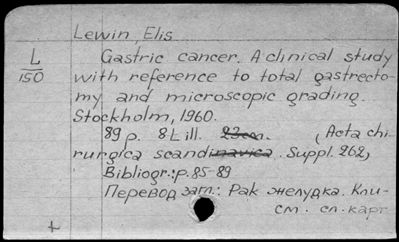 Lewin, Elis
L
150
Gastric cancer. A clinical study
with reference to total gastrecto-
my and microscopic grading.
Stockholm, 1960.
89 p. 8 t ill. 23cm. (Acta chi-
rurgica scandinavica. Suppl. 262)
Bibliogr.: p. 85-89
Перевод загл.: Рак желудка. Кли-
см. сл. карт
+